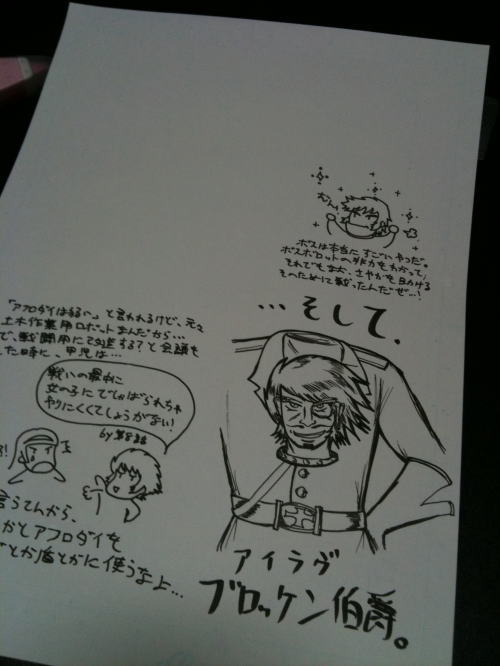 むん!
ボスは本当にすごいやつだ。
ボスボロットの非力をわかって、
それでもなお、さやかを助ける
そのために戦ったんだぜ…!
…そして、
「アフロダイは弱い」と言われるけど、元々
土木作業用ロボットなんだから…
で、戦闘用に改造する?と会議も
した時に、甲児は…
戦いの最中に
女の子にでしゃばられちゃ
やりにくくてしょうがない!
by 第8話
言うてんから、
かとアフロダイを
とか盾とかに使うなよ…
アイラヴ
ブロッケン伯爵。